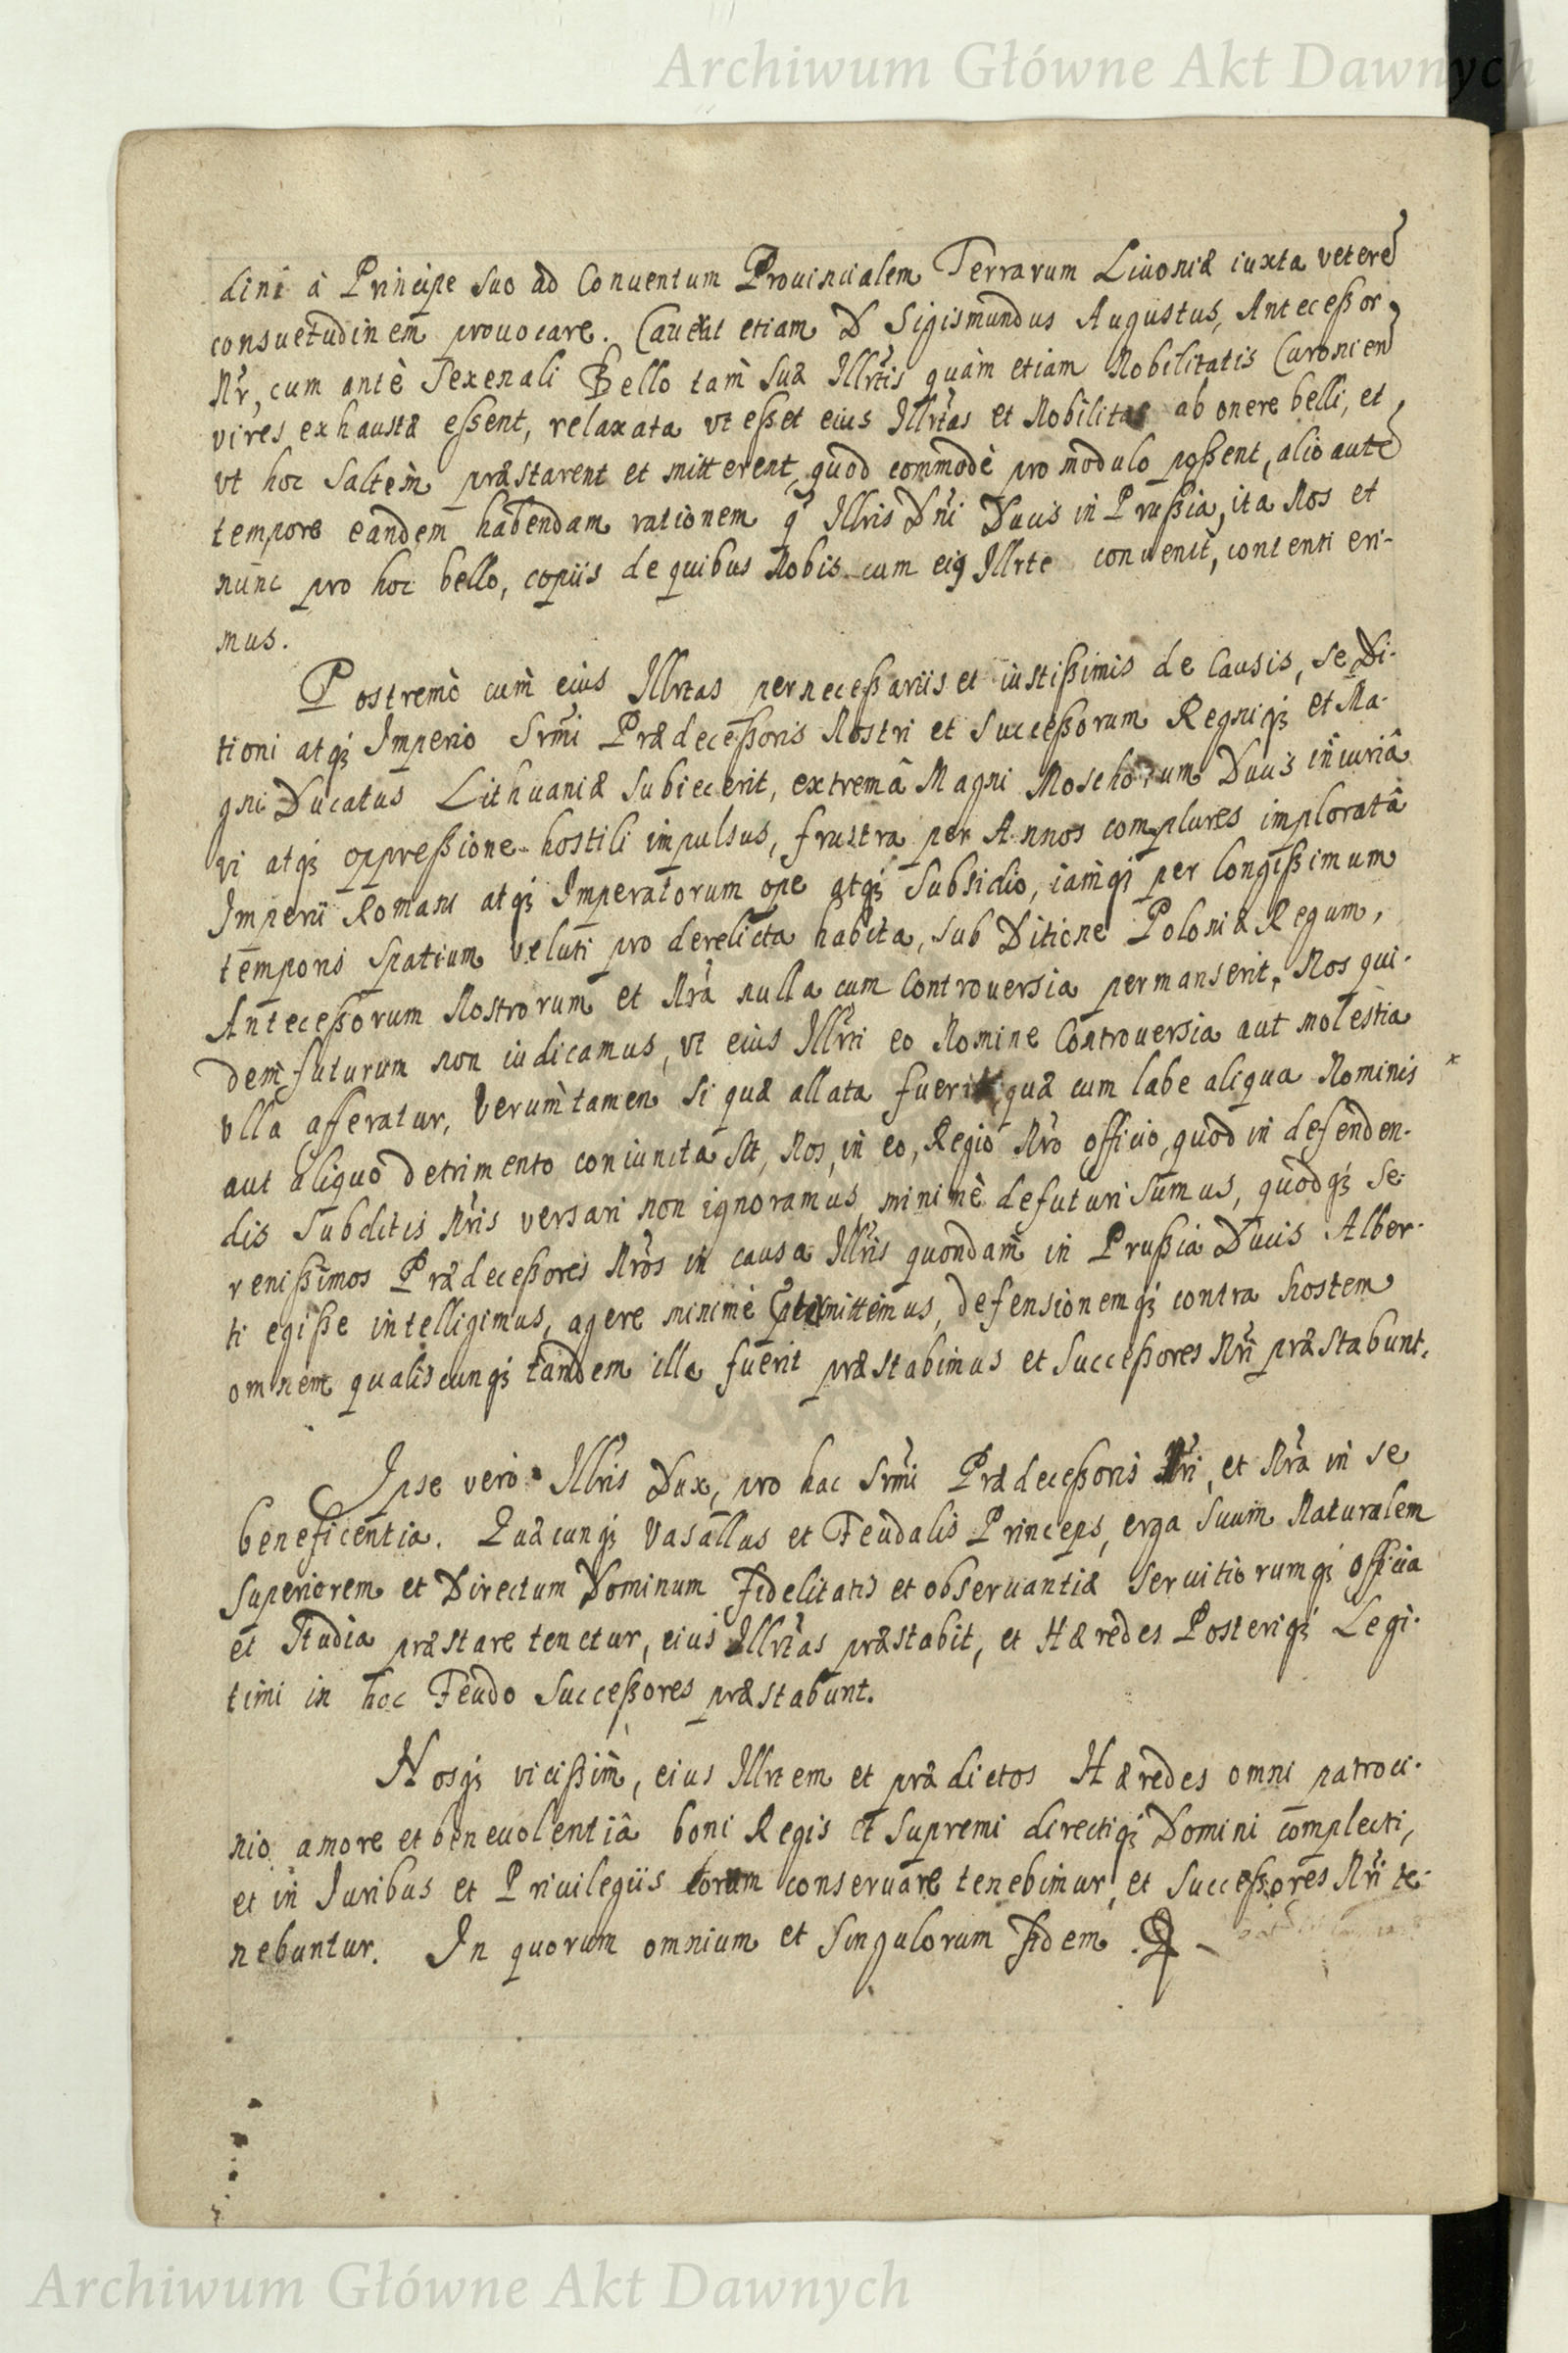 Archiwum Główne Akt Dawnych
dini à Principe suo ad Conuentum Prouincialem Terrarum Liuoniæ iuxta veterẽ
consuetudinem prouocare. Cauerat etiam D Sigismundus Augustus, Antecessor
Nr̃, cum antè Sexenali Bello tam̀ suæ Illrt̃is quàm etiam Nobilitatis Curonien
vires exhaustæ essent, relaxata vt esset eius Illrt̃as et Nobilitas ab onere belli, et
vt hoc saltem̀ præstarent et mitterent, quod commodè pro modulo possent, alio autẽ
tempore eandem habendam rationem q̃ Illris Dñi Ducis in Prussia, ita Nos et
nunc pro hoc bello, copiis de quibus Nobis cum eiꝰ Illrte conuenit, contenti eri-
mus.
Postremò cum̀ eius Illrtas pernecessariis et iustissimis de Causis, se Di-
tioni atqꝫ Imperio Srm̃i Prædecessoris Nostri et Successorum Regniqꝫ et Ma-
gni Ducatus Lithuaniæ subiecerit, extremâ Magni Moschorum Ducis iniuriâ
vi atqꝫ oppressione hostili impulsus, frustra per Annos complures imploratâ
Imperii Romani atqꝫ Imperatorum ope atqꝫ subsidio, iam̀qꝫ per longissimum
temporis spatium veluti pro derelicta habita, sub Ditione Poloniæ Regum,
Antecessorum Nostrorum et Nr̃a nulla cum Controuersia permanserit, Nos qui-
dem futurum non iudicamus, vt eius Illrt̃i eo Nomine Controuersia aut molestia
vlla afferatur, Verum̀tamen si quæ allata fuerit, quæ cum labe aliqua Nominis *
aut aliquo detrimento coniuncta sit, Nos, in eo, Regio Nr̃o officio, quod in defenden-
dis subditis Nr̃is versari non ignoramus, minimè defuturi sumus, quodqꝫ Se-
renissimos Prædecessores Nr̃os in causa Illr̃is quondam̀ in Prussia Ducis Alber-
ti egisse intelligimus, agere minimè mittemus, defensionemqꝫ contra hostem
omnem qualiscunqꝫ tandem illa fuerit præstabimus et Successores Nr̃i præstabunt.
Ipse verò Illris Dux, pro hac Srm̃i Prædecessoris Nr̃i, et Nr̃a in se
beneficentia. Quæcunqꝫ Vasallus et Feudalis Princeps, erga suum Naturalem
Superiorem et Directum Dominum Fidelitatis et obseruantiæ seruitiorumqꝫ officia
et studia præstare tenetur, eius Illrt̃as præstabit, et Hæredes Posteriqꝫ Legi-
timi in hoc Feudo Successores præstabunt.
Nosqꝫ vicissim̀, eius Illrtem et prædictos Hæredes omni patroci-
nio amore et beneuolentiâ boni Regis et Supremi directiqꝫ Domini complecti,
et in Iuribus et Priuilegiis eorum conseruare tenebimur, et Successores Nr̃i te-
nebuntur. In quorum omnium et singulorum Fidem
Archiwum Główne Akt Dawnych